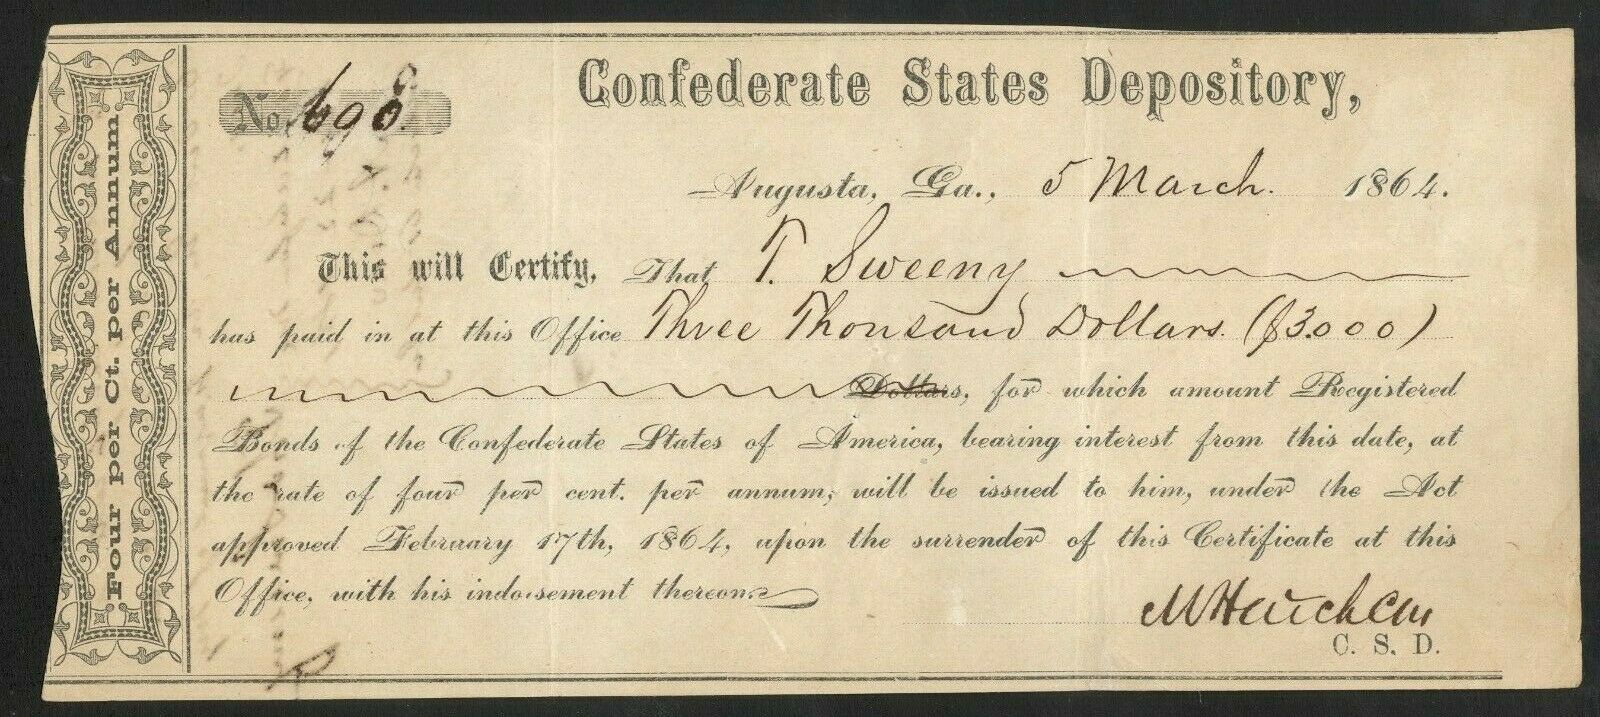 Four per Ct. per Annum
No. 690.
Confederate States Depository,
Augusta, Ga., 5 March. 1864.
This will Certify, That T. Sweeny
has paid in at this Office Three Thousand Dollars. ($3.000)
Dollars, for which amount Registered
Bonds of the Confederate States of America, bearing interest from this date, at
the rate of four per cent. per annum, will be issued to him, under the Act
approved February 17th, 1864, upon the surrender of this Certificate at this
Office, with his indorsement thereon.
C. S. D.